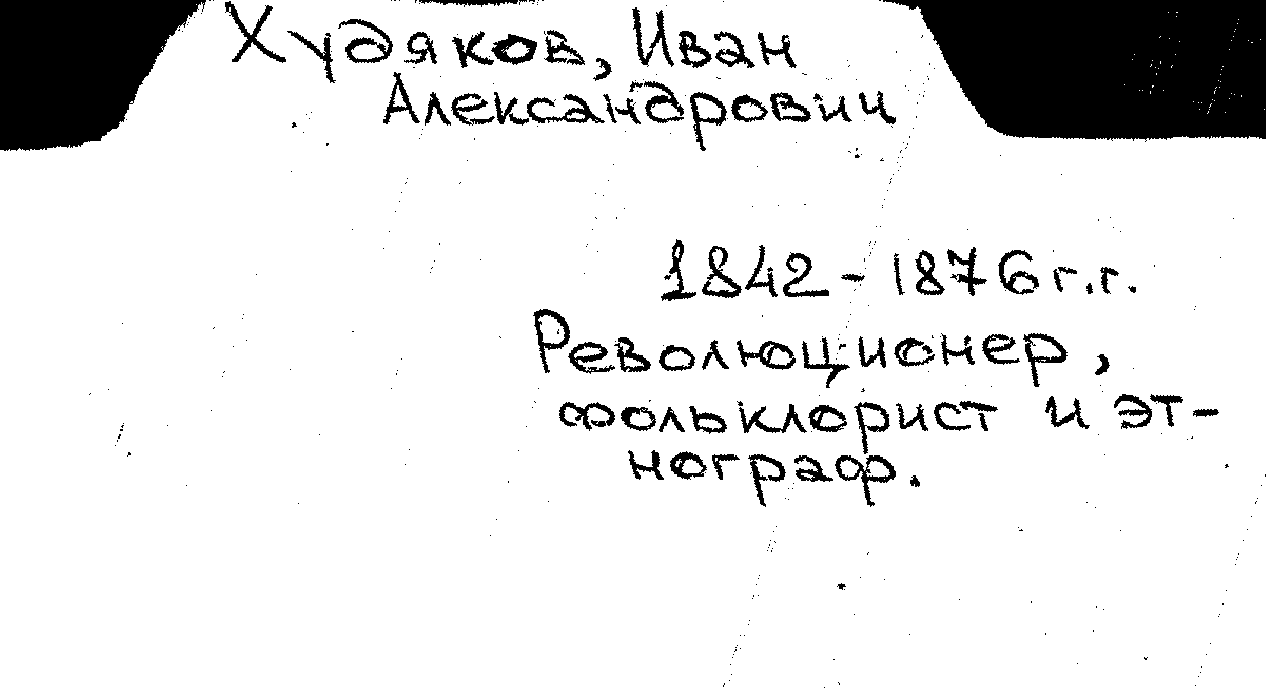 Худяков, Иван
Александрович
1842-1876 г.г.
Революционер,
фольклорист и эт-
нограф.